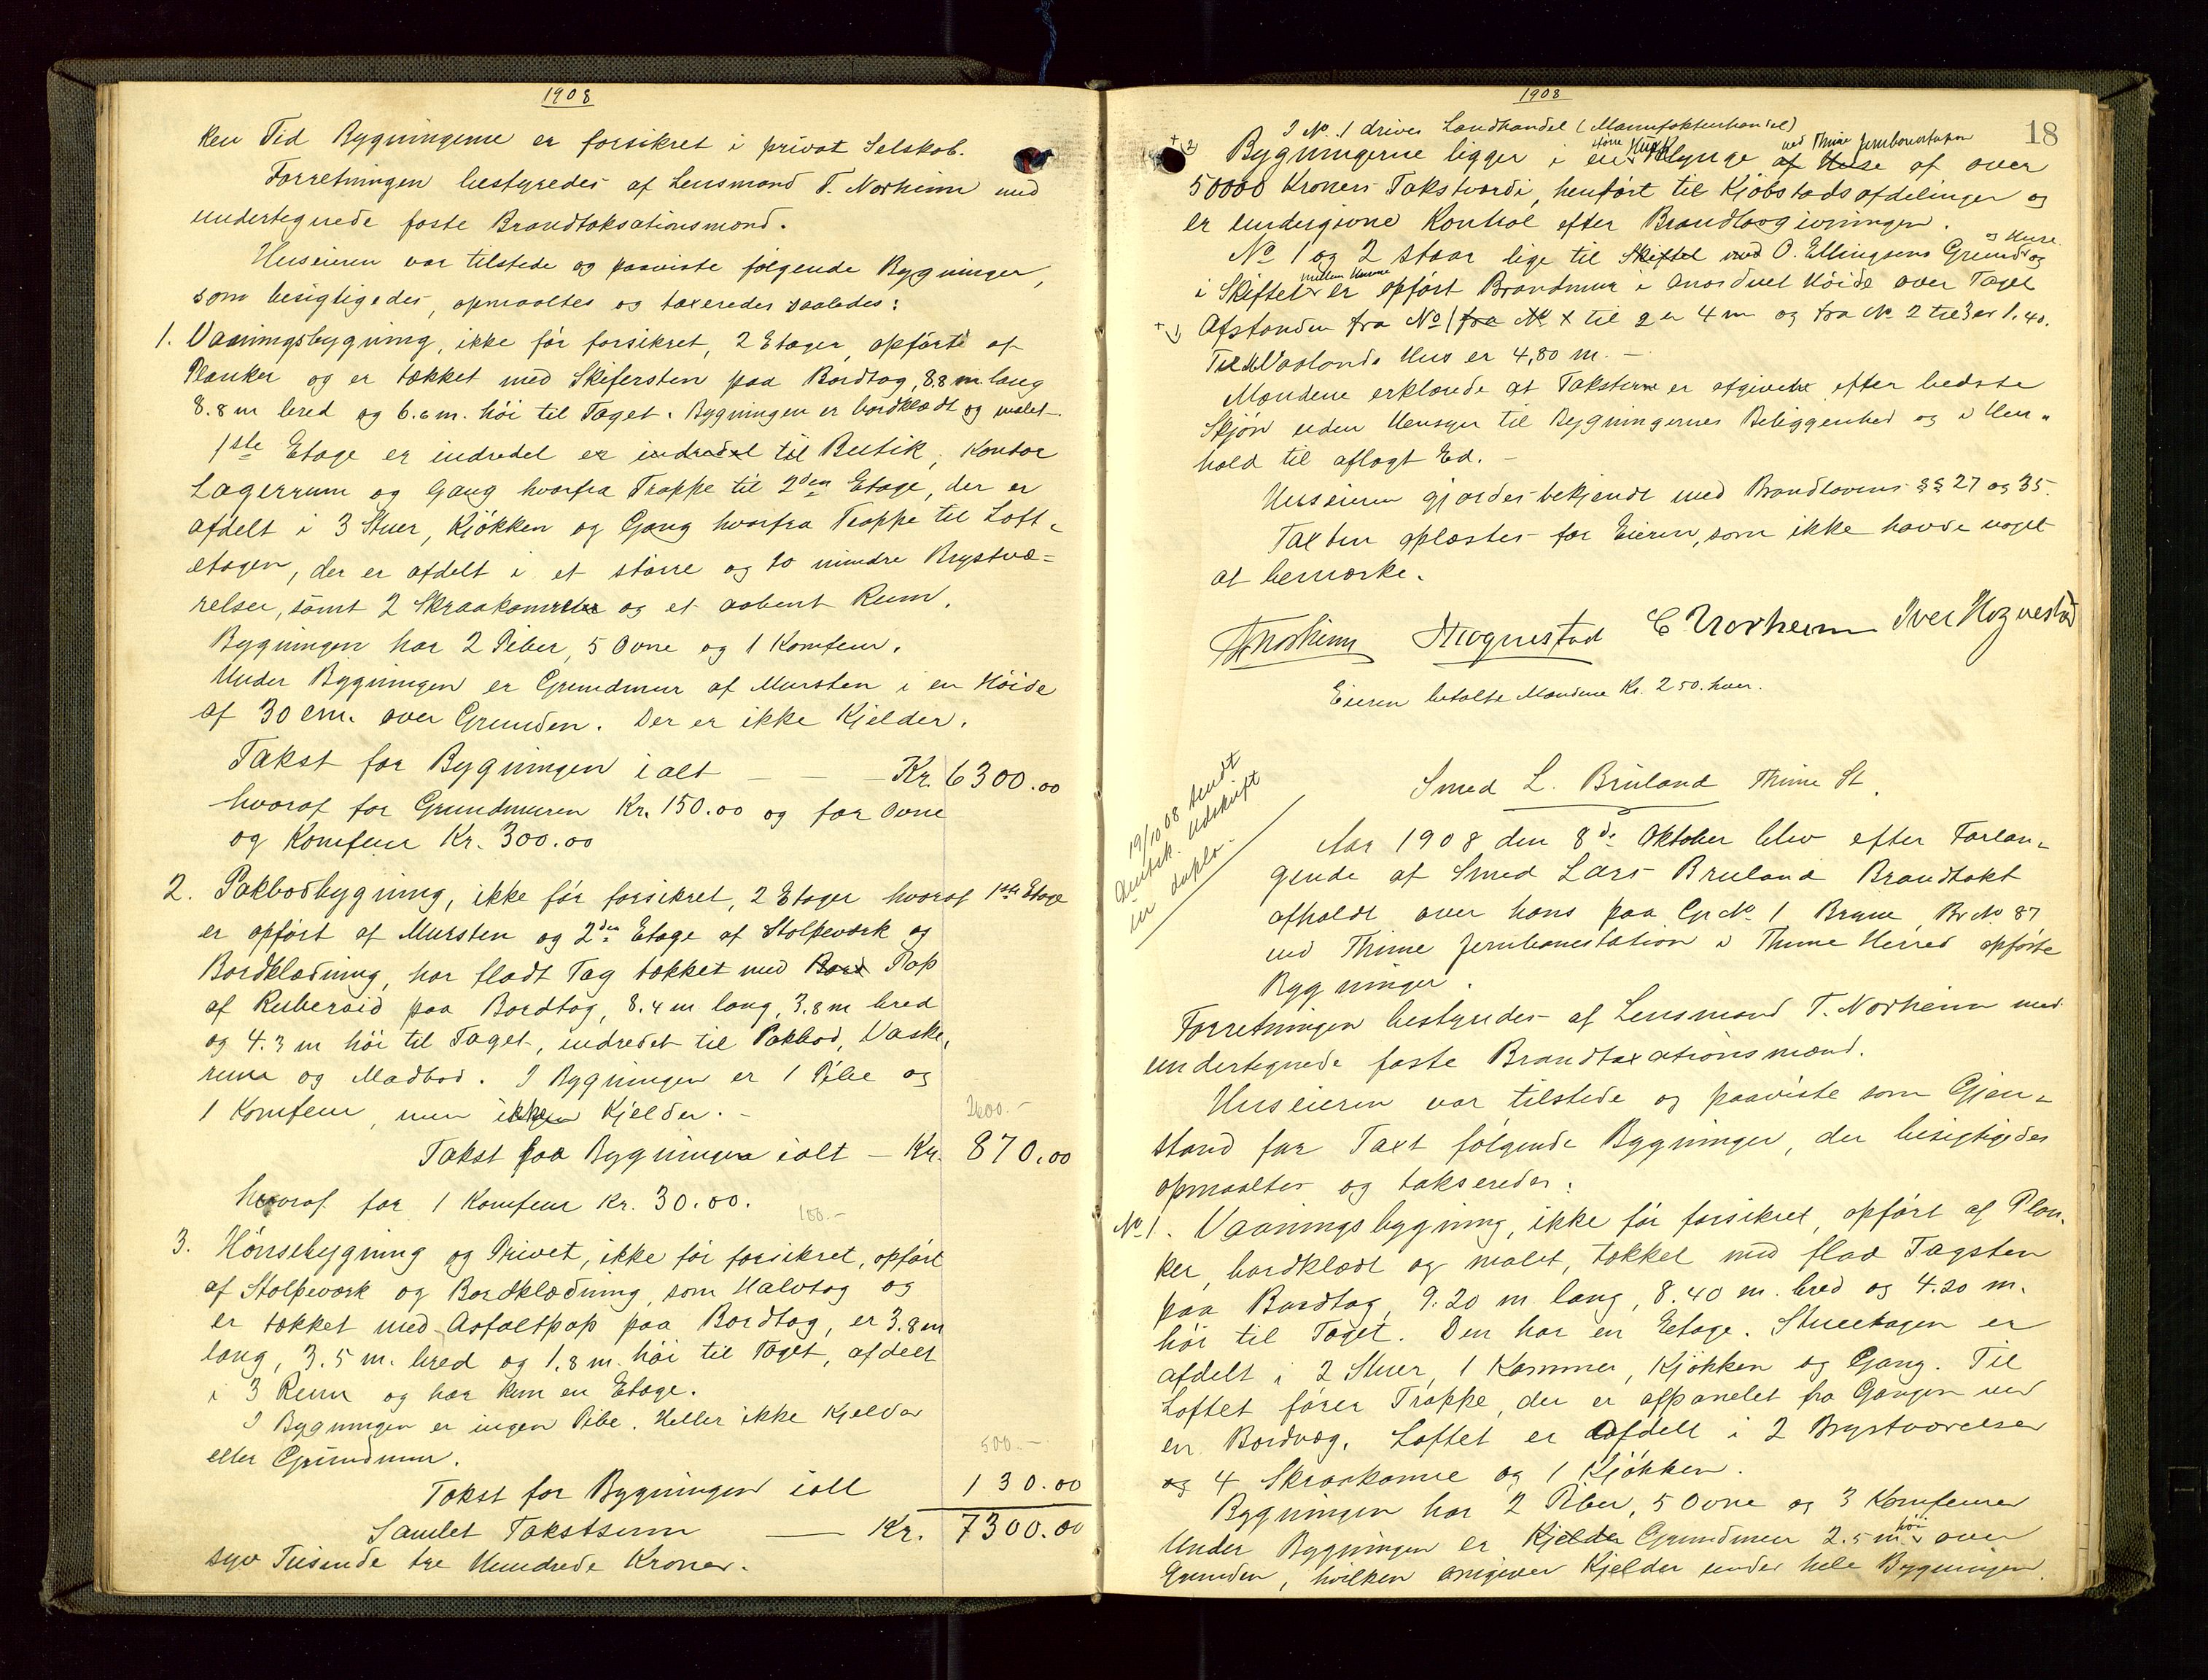 1908
ken Tid Bygningerne er forsikret i privat Selskab.
Forretningen bestyredes af Lensmand T. Norheim med
undertegnede faste Brandtaksationsmænd.
Huseieren var tilstede og paaviste følgende Bygninger,
som besigtigedes, opmaaltes og taxeredes saaledes:
1. Vaaningsbygning, ikke før forsikret, 2 Etager, opført af
Planker og er tækket med Skifersten paa Bordtag, 8.8 m lang
8.8 m bred og 6.6 m. høi til Taget. Bygningen er bordklædt og malet.
1ste Etage er indredet er indredet til Butik, Kontor
Lagerrum og Gang hvorfra Trappe til 2den Etage, der er
afdelt i 3 Stuer, Kjøkken og Gang hvorfra Trappe til Loft-
etagen, der er afdelt i et større og to mindre Brystvæ=
relser, samt 2 Skraakamre og et aabent Rum.
Bygningen har 2 Piber, 5 Ovne og 1 Komfeur.
Under Bygningen er Grundmur af Mursten i en Høide
af 30 cm. over Grunden. Der er ikke Kjelder.
Takst for Bygningen ialt — — — Kr. 6300.00
hvoraf for Grundmuren Kr. 150.00 og for Ovne
og Komfeur Kr. 300.00
2. Pakbodbygning, ikke før forsikret, 2 Etager hvoraf 1ste Etage
er opført af Mursten og 2den Etage af Stolpeværk og
Bordklædning, har fladt Tag tækket med Bord Pap
af Ruberoid paa Bordtag, 8.4 m lang, 3.8 m bred
og 4.3 m høi til Taget, indredet til Pakbod, Vaske-
rum og Madbod. I Bygningen er 1 Pibe og
1 Komfeur, men ikke Kjelder. -
2600.-
Takst paa Bygningen ialt — Kr. 870.00
hvoraf for 1 Komfeur Kr. 30.00.
100.-
3. Hønsebygning og Privet, ikke før forsikret, opført
af Stolpeværk og Bordklædning, som Halvtag og
er tækket med Asfaltpap paa Bordtag, er 3.8 m
lang, 3.5 m. bred og 1.8 m. høi til Taget, afdelt
i 3 Rum og har kun en Etage.
I Bygningen er ingen Pibe. Heller ikke Kjelder
eller Grundmur.
500.-
Takst for Bygningen ialt 130.00
Samlet Takstsum — Kr. 7300.00
syv Tusende tre Hundrede Kroner.
1908
18
I No. 1 drives Landhandel (Manufakturhandel)
Bygningerne ligger i en større Huskl Klynge af Huse ved Thime Jernbanestation af over
50000 Kroners Takstværdi, henført til Kjøbstadsafdelingen og
er undergivne Kontrol efter Brandlovgivningen.
No 1 og 2 staar lige til Skiftet med O. Ellingsens Grund og Huse og
i Skiftet mellem Husene er opført Brandmur i anordnet Høide over Taget
Afstanden fra No 1 fra No x til 2 er 4 m og fra No 2 til 3 er 1.40.
Til Vaalands Hus er 4,80 m. -
Mændene erklærede at Taksterne er afgivne efter bedste
Skjøn uden Hensyn til Bygningernes Beliggenhed og i Hen-
hold til aflagt Ed. -
Huseieren gjordes bekjendt med Brandlovens §§ 27 og 35.
Taxten oplæstes for Eieren, som ikke havde noget
at bemærke.
T. Norheim Hognestad E Norheim Iver Hognestad
Eieren betalte Mændene Kr. 2 50. hver.
Smed L. Bruland Thime St.
19/10 08 sendt
Amtsk. Udskrift
in duplo.
Aar 1908 den 8de Oktober blev efter Forlan-
gende af Smed Lars Bruland Brandtakt
afholdt over hans paa Gr No 1 Bryne, Br No 87
ved Thime Jernbanestation i Thime Herred opførte
Bygninger.
Forretningen bestyredes af Lensmand T. Norheim med
undertegnede faste Brandtaxationsmænd.
Huseieren var tilstede og paaviste som Gjen-
stand for Taxt følgende Bygninger, der besigtigedes
opmaaltes og takseredes:
No 1. Vaaningsbygning, ikke før forsikret, opført af Plan-
ker, bordklædt og malet, tækket med flad Tagsten
paa Bordtag, 9.20 m lang, 8.40 m. bred og 4.20 m.
høi til Taget. Den har en Etage. Stueetagen er
afdelt i 2 Stuer, 1 Kammer, Kjøkken og Gang. Til
Loftet fører Trappe, der er afpanelet fra Gangen ved
en Bordvæg. Loftet er afdelt i 2 Brystværelser
og 4 Skraakamre og 1 Kjøkken.
Bygningen har 2 Piber, 5 Ovne og 3 Komfeurer
Under Bygningen er Kjelder Grundmur 2.5 m høi over
Grunden, hvilken omgiver Kjelder under hele Bygningen.